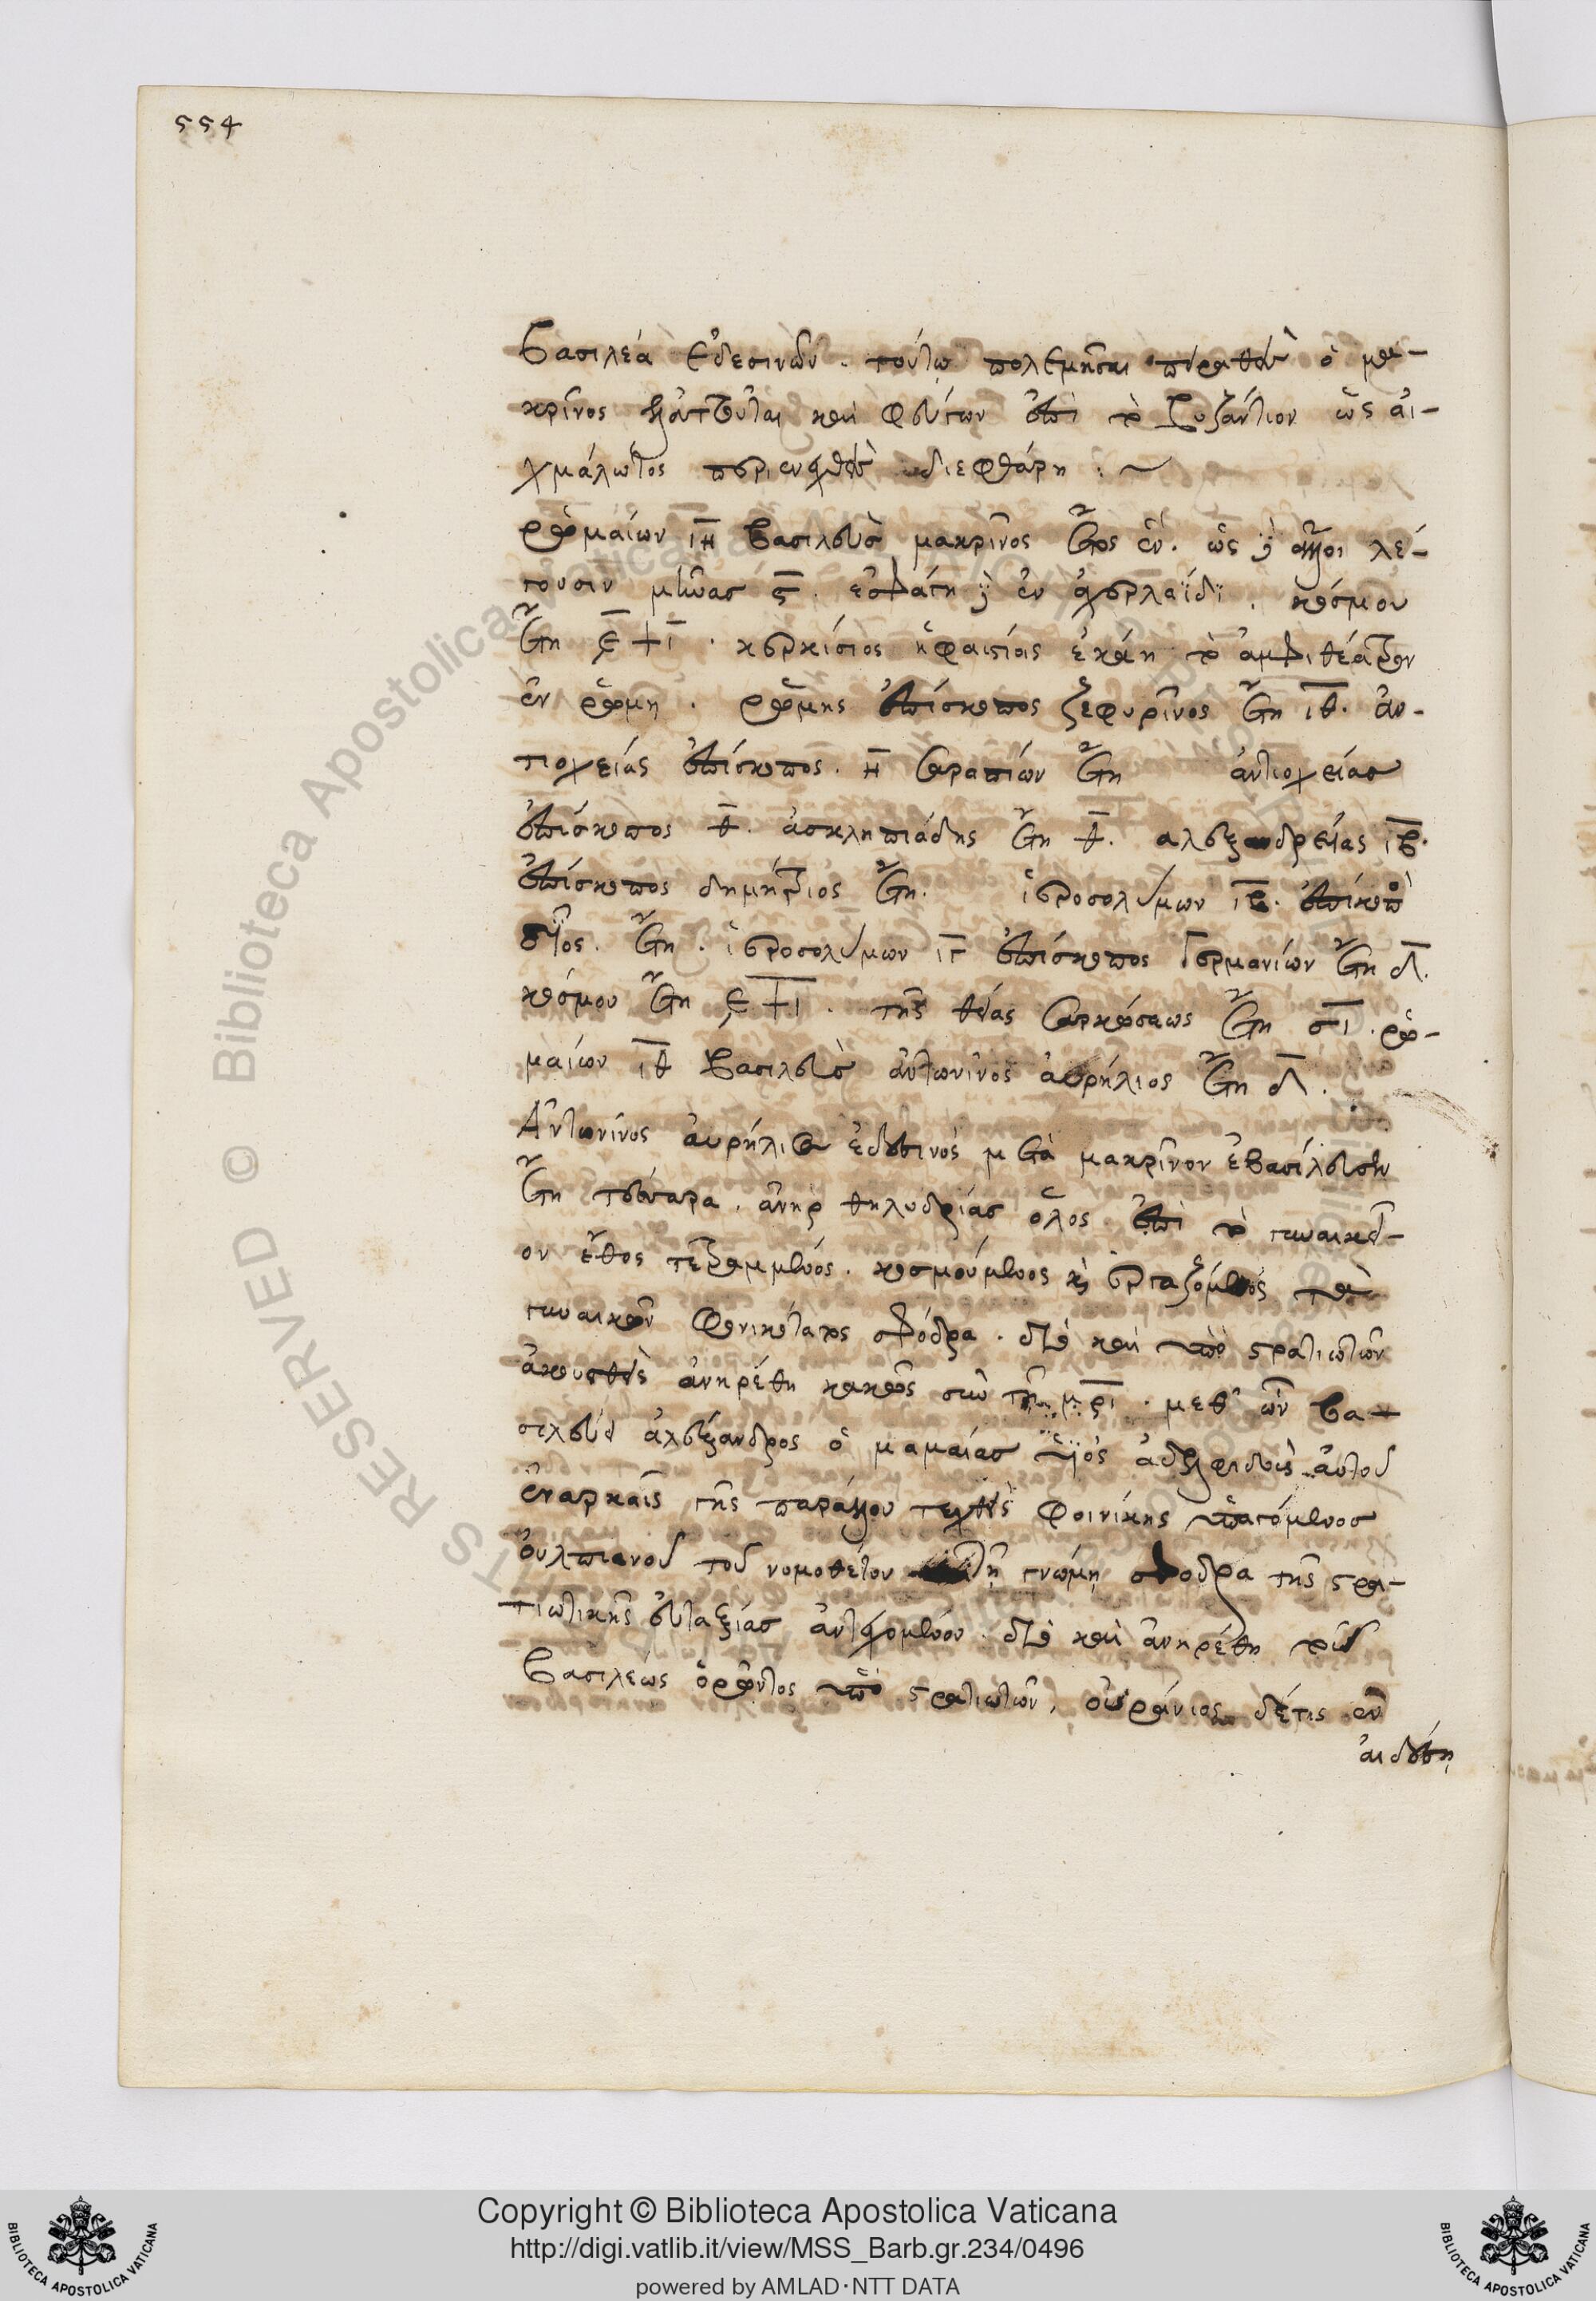 554
βασιλέα ἐδεσινῶν. τούτῳ πολεμῆσαι πειραθεὶς ὁ μα-
κρῖνος ἡττᾶται καὶ φεύγων ἐπὶ τὸ βυζάντιον ὡς αἰ-
χμάλωτος περιενεχθεὶς διεφθάρη :~
ῥωμαίων ιη βασιλεὺς μακρῖνος ἔτος ἕν. ὡς δὲ ἄλλοι λέ-
γουσιν μῆνας ς. ἐσφάγη δὲ ἐν ἀρχελαΐδι. κόσμου
ἔτη εψι. κερκίσιος ἡφαιστίας ἐκάη τὸ ἀμφιθέατρον
ἐν ῥώμῃ. ῥώμης ἐπίσκοπος ζεφυρῖνος ἔτη ιθ. ἀν-
τιοχείας ἐπίσκοπος. η σεραπίων ἔτη ἀντιοχείας
ἐπίσκοπος θ. ἀσκληπιάδης ἔτη θ. αλεξανδρείας ιβ.
ἐπίσκοπος δημήτριος ἔτη. ἱεροσολύμων ιβ. ἐπίσκοπο
δῖος. ἔτη. ἱεροσολύμων ιγ ἐπίσκοπος γερμανίων ἔτη δ.
κόσμου ἔτη εψι. τῆς θείας σαρκώσεως ἔτη σι. ῥω-
μαίων ιθ βασιλεὺς ἀντωνῖνος αὐρήλιος ἔτη δ.
Ἀντωνῖνος αὐρήλιος ἐδεσινὸς μετὰ μακρῖνον ἐβασίλευσεν
ἔτη τέσσαρα. ἀνὴρ θηλυδρίας ὅλος. ἐπὶ τὸ γυναικεῖ-
ον ἦθος τετραμμένος. κοσμούμενος καὶ ἐργαζόμενος τὰ
γυναικῶν φονικώτατος σφόδρα. διὸ καὶ ὑπὸ στρατιωτῶν
ἀκουσθεὶς ἀνηρέθη κακῶς σὺν τῇ μρι. μεθ' ὧν βα-
σιλεύει ἀλέξανδρος ὁ μαμαίας υἱὸς ἀδελφιδοῦς αὐτοῦ
ἐν ἀρκαῖς τῆς παράλου τεχθεὶς φοινίκης ὑπαγόμενος
οὐλπιανοῦ τοῦ νομοθέτου τῇ γνώμῃ σφόδρα τῆς στρα-
τιωτικῆς εὐταξίας ἀντεχομένου. διὸ καὶ ἀνηρέθη τοῦ
βασιλέως ὁρῶντος ὑπὸ στρατιωτῶν, οὐράνιος δέ τις ἐν
αἰδέση
Copyright © Biblioteca Apostolica Vaticana
http://digi.vatlib.it/view/MSS_Barb.gr.234/0496
powered by AMLAD·NTT DATA
BIBLIOTECA APOSTOLICA VATICANA
BIBLIOTECA APOSTOLICA VATICANA